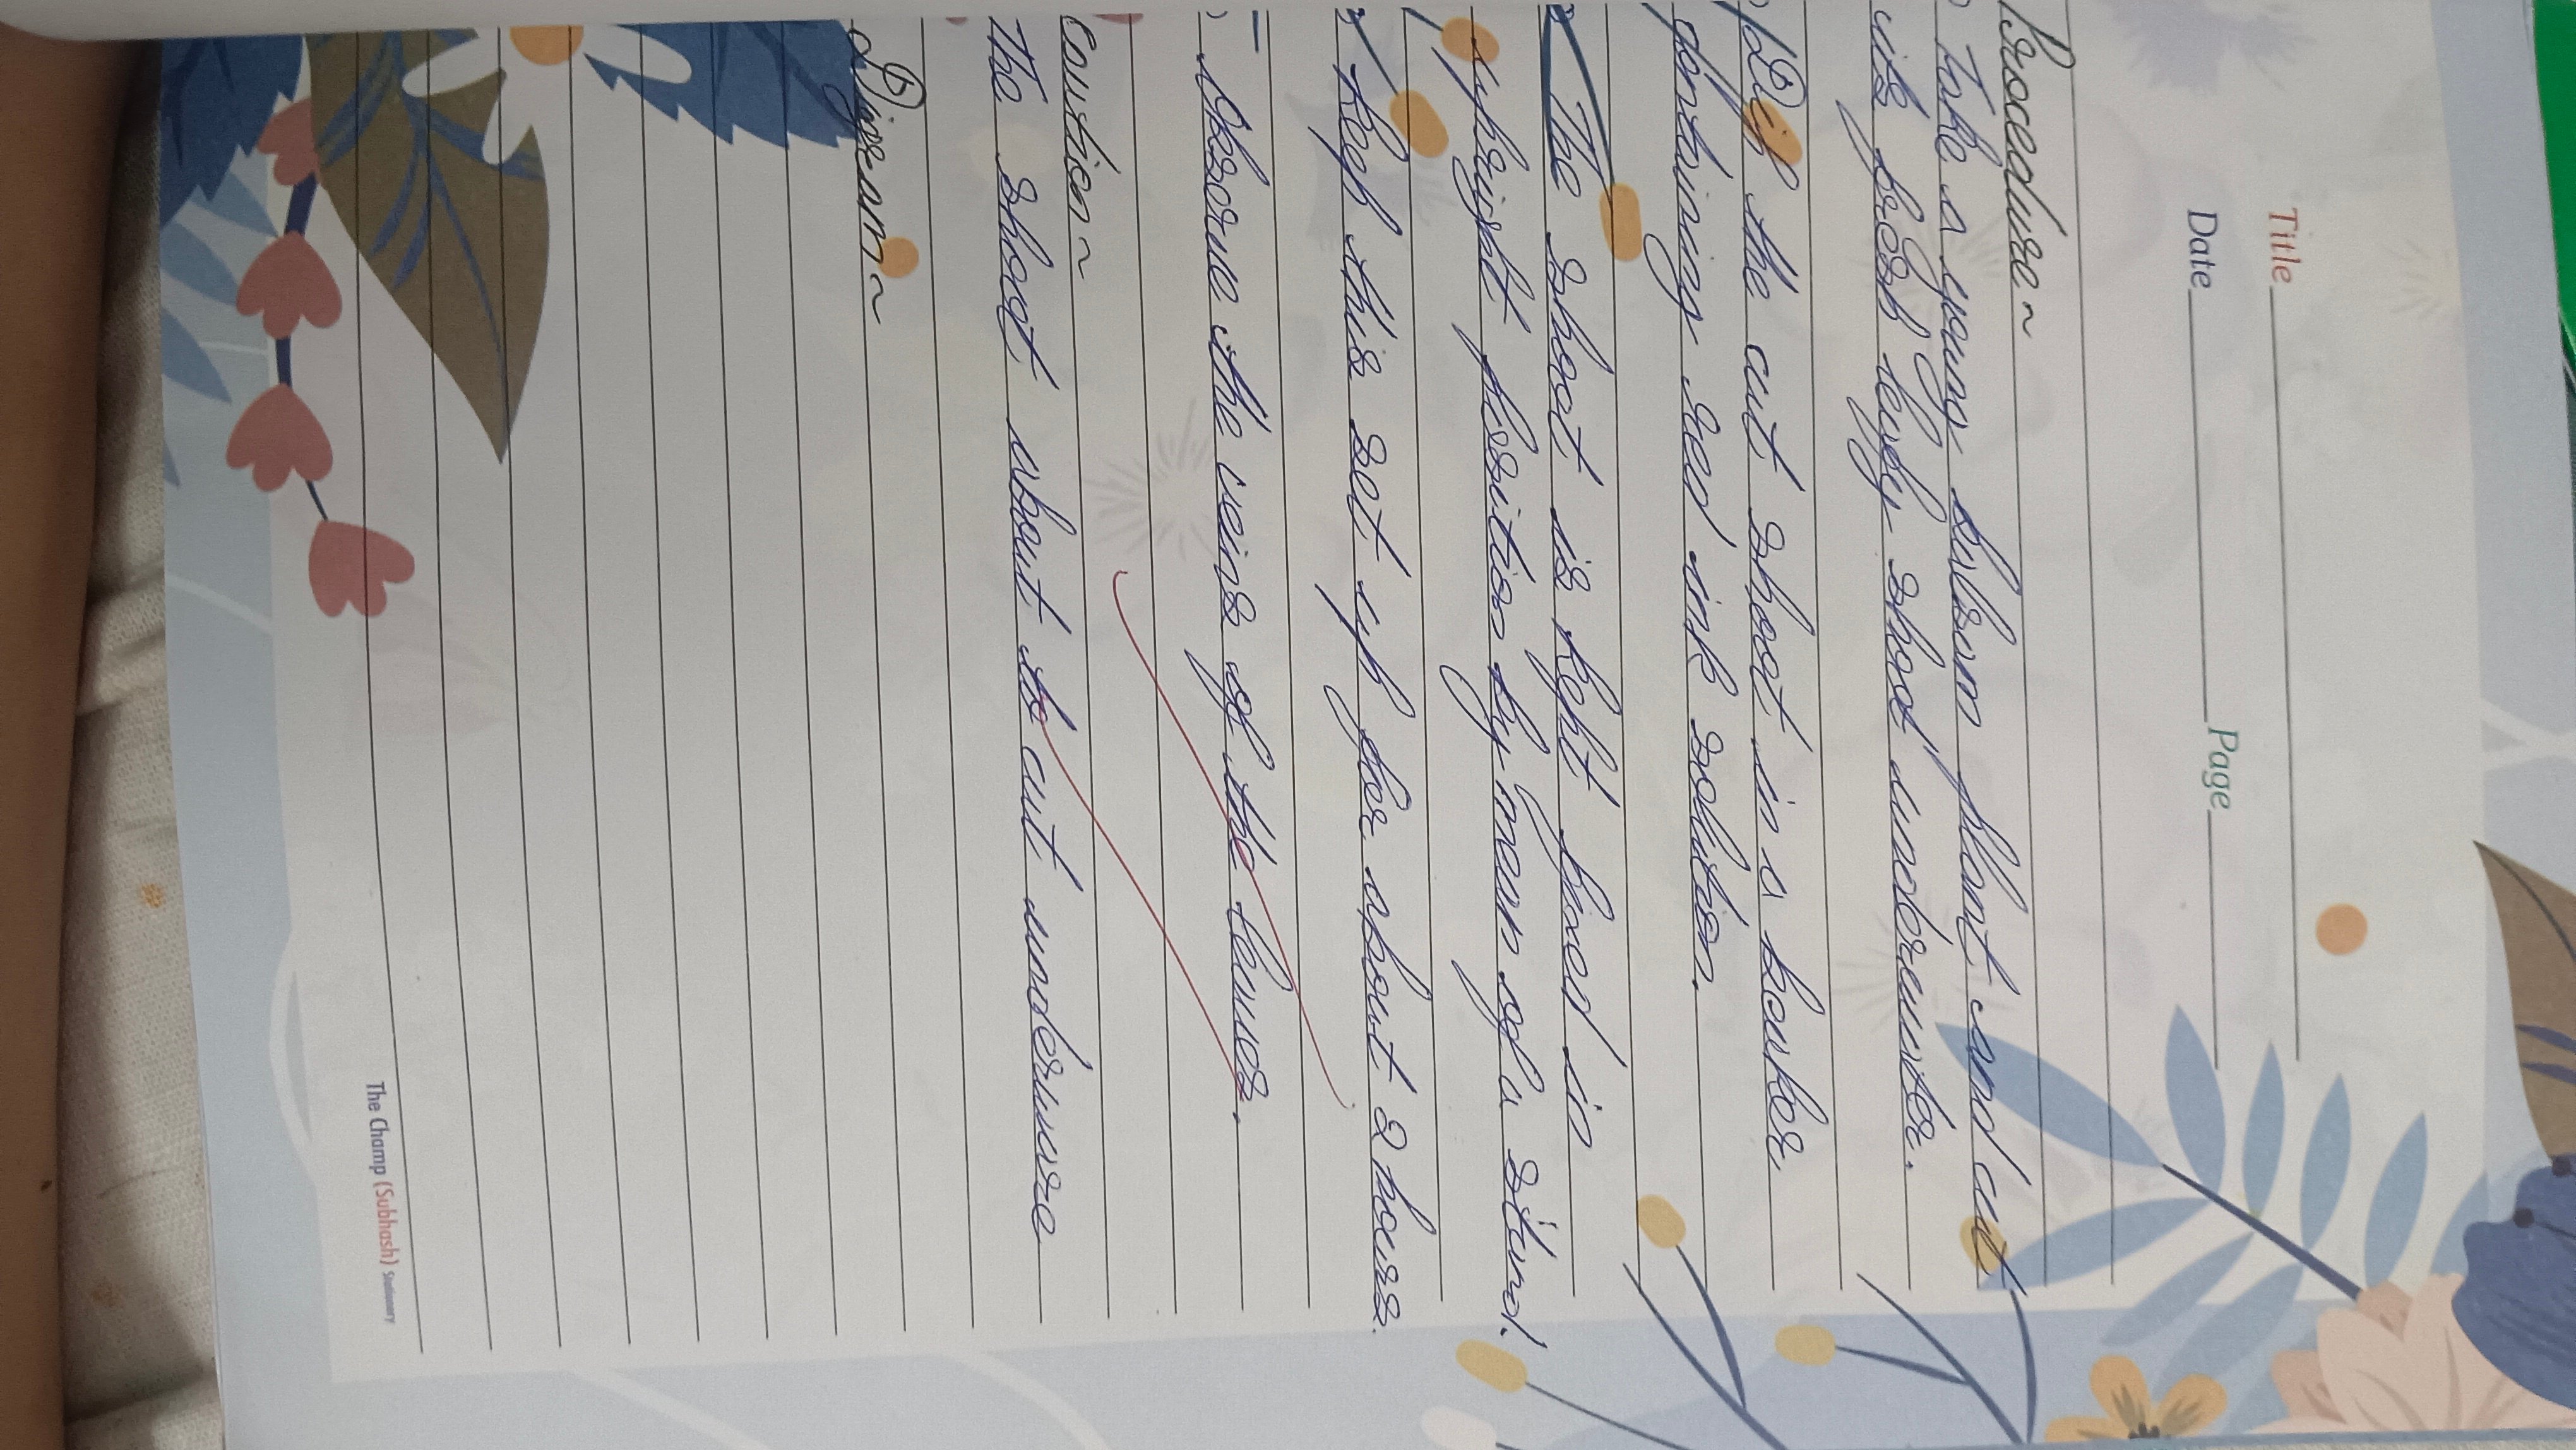 Title
Date Page
Procedura ~
Take a young bulsom plant and cut
its fresh leafy shoot underwater.
Dip the cut shoot in a beaker
contrining red ink solution.
The shoot is kept fixed in
upright position by mean of a stand.
Keep this set up for about 2 hours.
Obsorve the veins of the leaves.
Coution ~
The shoot about to cut underware
Digram ~
The Champ (Subhash) Stationery